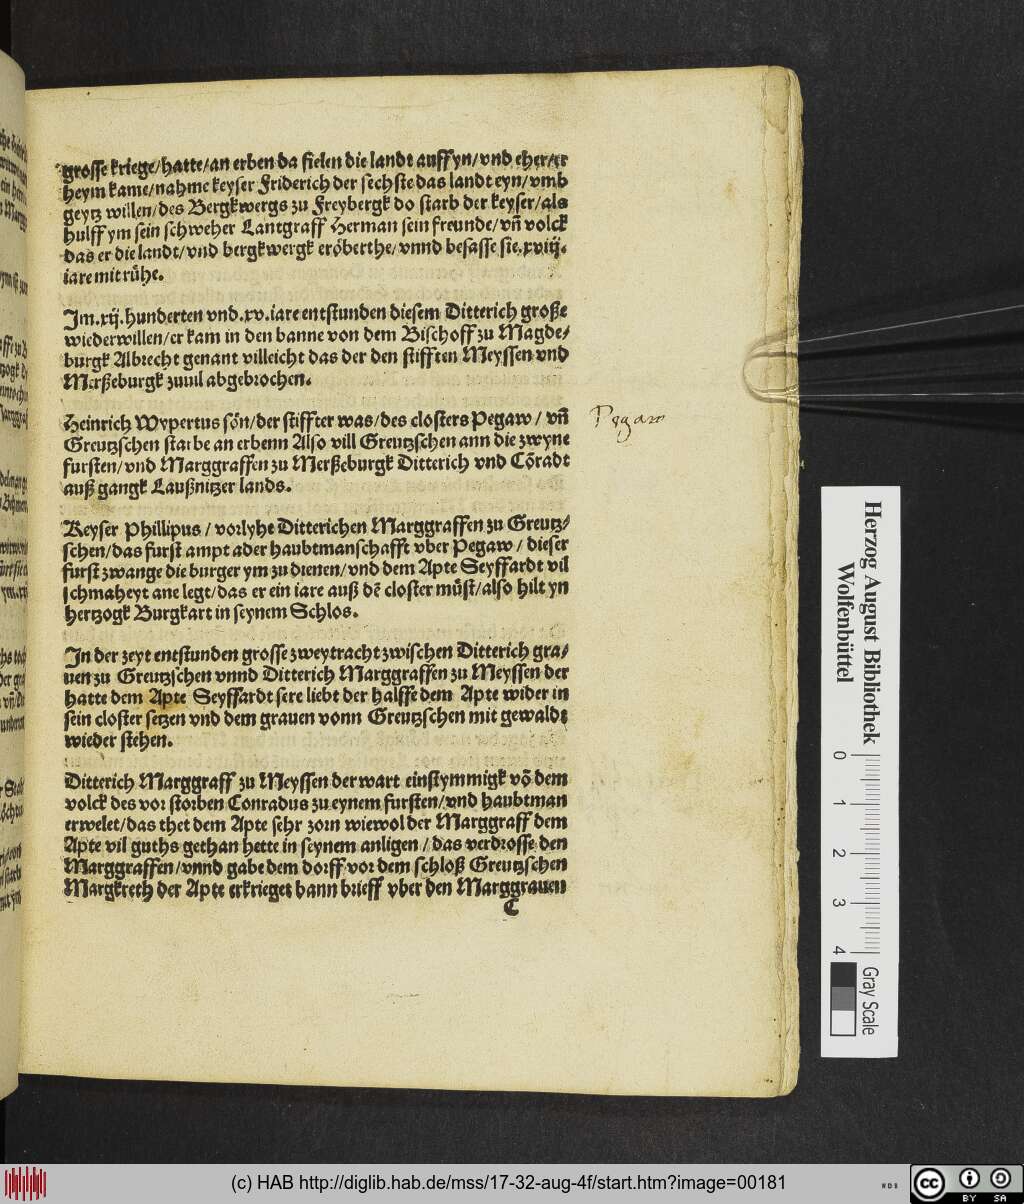 grosse kriege/hatte/an erben da fielen die landt auff yn/vnd eher/er
heym kame/nahme keyser Friderich der sechste das landt eyn/vmb
geytz willen/des Bergkwergs zu Freybergk do starb der keyser/als
hulff ym sein schweher Lantgraff Herman sein freunde/vñ volck
das er die landt/vnd bergkwergk eröberthe/vnnd besasse sie.xviij.
iare mit rühe.
Im.xij.hunderten vnd.xv.iare entstunden diesem Ditterich große
wiederwillen/er kam in den banne von dem Bischoff zu Magde/
burgk Albrecht genant villeicht das der den stifften Meyssen vnd
Merßeburgk zuuil abgebrochen.
Heinrich Wypertus sön/der stiffter was/des closters Pegaw / vñ
Greutzschen starbe an erbenn Also vill Greutzschen ann die zwyne
fursten/vnd Marggraffen zu Merßeburgk Ditterich vnd Cõradt
auß gangk Laußnitzer lands.
Pegaw
Keyser Phillipus / vorlyhe Ditterichen Marggraffen zu Greutz/
schen/das furst ampt ader haubtmanschafft vber Pegaw / dieser
furst zwange die burger ym zu dienen/vnd dem Apte Seyffardt vil
schmaheyt ane legt/das er ein iare auß dē closter müst/also hilt yn
hertzogk Burgkart in seynem Schlos.
In der zeyt entstunden grosse zweytracht zwischen Ditterich gra/
uen zu Greutzschen vnnd Ditterich Marggraffen zu Meyssen der
hatte dem Apte Seyffardt sere liebt der halffe dem Apte wider in
sein closter setzen vnd dem grauen vonn Greutzschen mit gewaldt
wieder stehen.
Ditterich Marggraff zu Meyssen der wart einstymmigk võ dem
volck des vor storben Conradus zu eynem fursten/vnd haubtman
erwelet/das thet dem Apte sehr zorn wiewol der Marggraff dem
Apte vil guths gethan hette in seynem anligen / das verdrosse den
Marggraffen/vnnd gabe dem dorff vor dem schloß Greutzschen
Margkreth der Apte erkrieget bann brieff vber den Marggrauen
C
Herzog August Bibliothek
Wolfenbüttel
0 1 2 3 4
Gray Scale
(c) HAB http://diglib.hab.de/mss/17-32-aug-4f/start.htm?image=00181
cc
BY SA